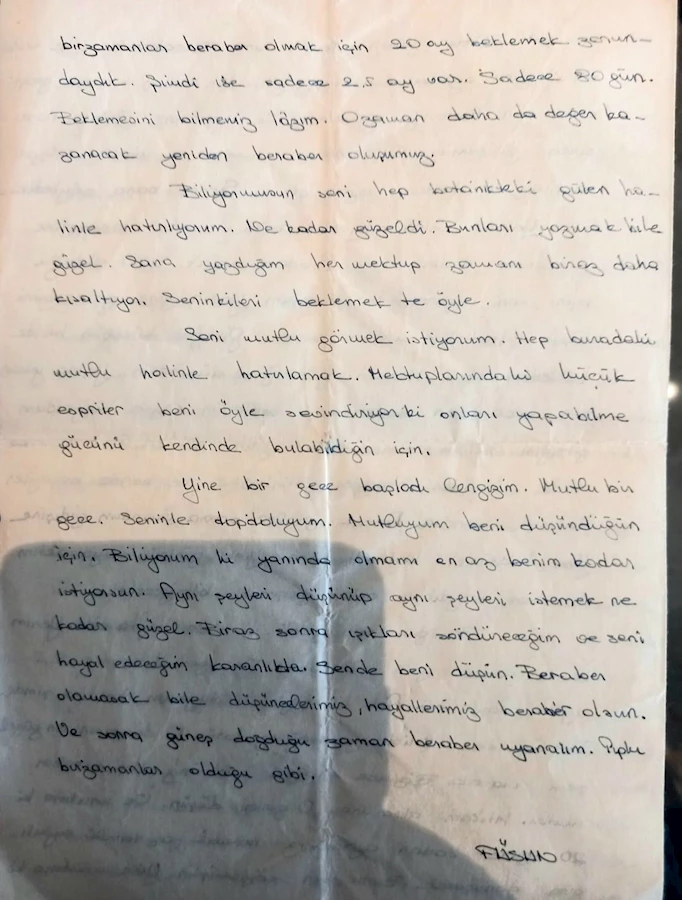 birzamanlar beraber olmak için 20 ay beklemek zorun-
daydık. Şimdi ise sadece 2,5 ay var. Sadece 80 gün.
Beklemesini bilmemiz lâzım. Ozaman daha da değer ka-
zanacak yeniden beraber oluşumuz.
Biliyormusun seni hep botanikteki gülen ha-
linle hatırlıyorum. Ne kadar güzeldi. Bunları yazmak bile
güzel. Sana yazdığım her mektup zamanı biraz daha
kısaltıyor. Seninkileri beklemek te öyle.
Seni mutlu görmek istiyorum. Hep buradaki
mutlu halinle hatırlamak. Mektuplarındaki küçük
espriler beni öyle sevindiriyor ki onları yapabilme
gücünü kendinde bulabildiğin için.
Yine bir gece başladı Cengizim. Mutlu bir
gece. Seninle dopdoluyum. Mutluyum beni düşündüğün
için. Biliyorum ki yanında olmamı en az benim kadar
istiyorsun. Aynı şeyleri düşünüp aynı şeyleri istemek ne
kadar güzel. Biraz sonra ışıkları söndüreceğim ve seni
hayal edeceğim karanlıkta. Sende beni düşün. Beraber
olamasak bile düşüncelerimiz, hayallerimiz beraber olsun.
Ve sonra güneş doğduğu zaman beraber uyanalım. Tıpkı
birzamanlar olduğu gibi.
FÜSUN